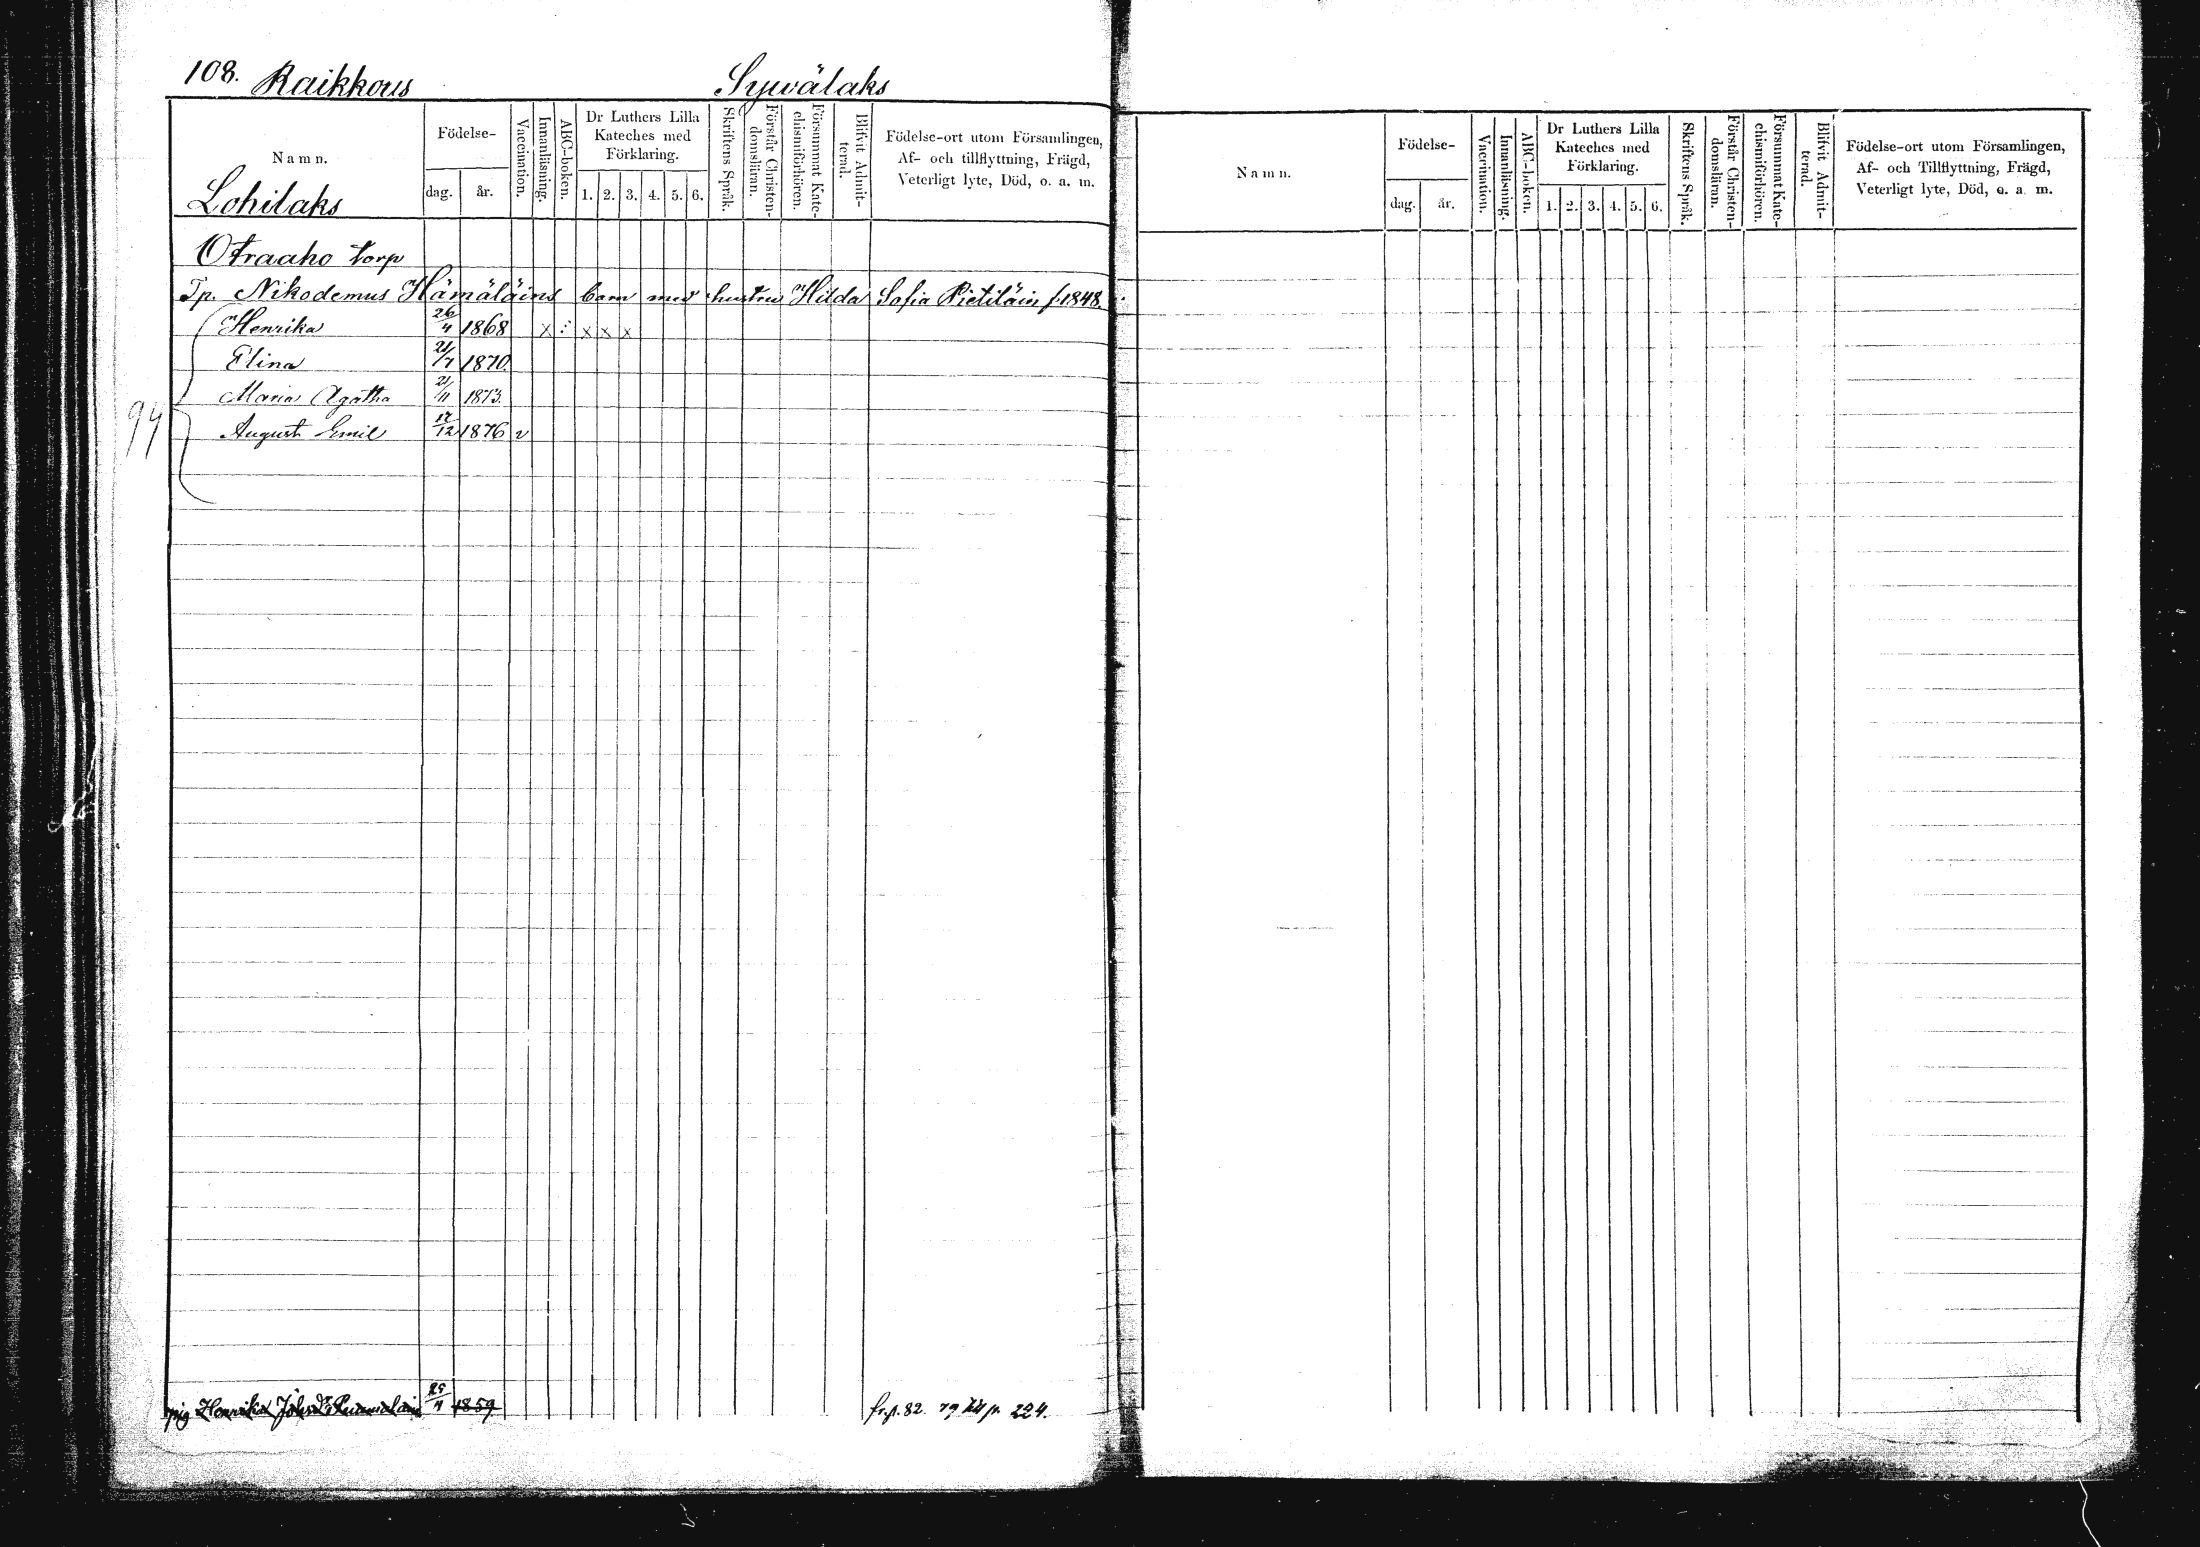 108. Raikkous Sywälaks
Namn. Födelse- dag. år. Vaccination. Innanläsning. ABC-boken. Dr Luthers Lilla Kateches med Förklaring. 1. 2. 3. 4. 5. 6. Skriftens Språk. Förstår Christendomsläran. Försummat Katechismiförhören. Blifvit Admitterad. Födelse-ort utom Församlingen, Af- och tillflyttning, Frägd, Veterligt lyte, Död, o. a. m.
Lohilaks
Otraaho torp
Tp. Nikodemus Hämäläins barn med hustru Hilda Sofia Pietiläin f. 1848.
Henrika 26/4 1868 x : x x x
Elina 21/7 1870.
Maria Agatha 21/11 1873.
94
August Emil 17/12 1876 v
pig Henrika 25/4 1859 fr. p. 82. 79 p. 224.
Namn. Födelse- dag. år. Vaccination. Innanläsning. ABC-boken. Dr Luthers Lilla Kateches med Förklaring. 1. 2. 3. 4. 5. 6. Skriftens Språk. Förstår Christendomsläran. Försummat Katechismiförhören. Blifvit Admitterad. Födelse-ort utom Församlingen, Af- och Tillflyttning, Frägd, Veterligt lyte, Död, o. a. m.